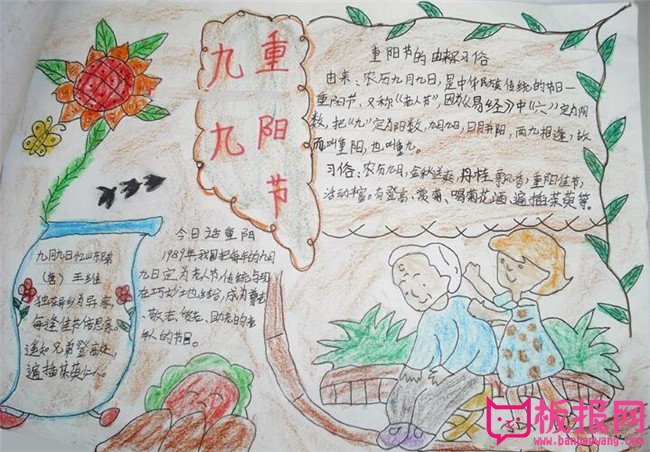 九
九
重
阳
节
重阳节的由来习俗
由来、农历九月九日，是中华民族传统的节日—
重阳节，又称《老人节》，因为《易经》中《六》定为阴
数，把《九》定为阳数，九月九日，日月并阳，两九相逢，故
而叫重阳，也叫重九。
习俗：农历九月，金秋送爽，丹桂飘香，重阳佳节，
活动丰富，有登高、赏菊、喝菊花酒、遍插茱萸等。
今日话重阳
1989年我国把每年的九月
九日定为老人节，传统与现
在巧妙地结合，成为尊老
、敬老、爱老、助老的老
年人的节日。
九月九日忆山东兄弟
（唐）王维
独在异乡为异客
每逢佳节倍思亲
遥知兄弟登高处，
遍插茱萸少一人。
板报网
www.banbaowang.com